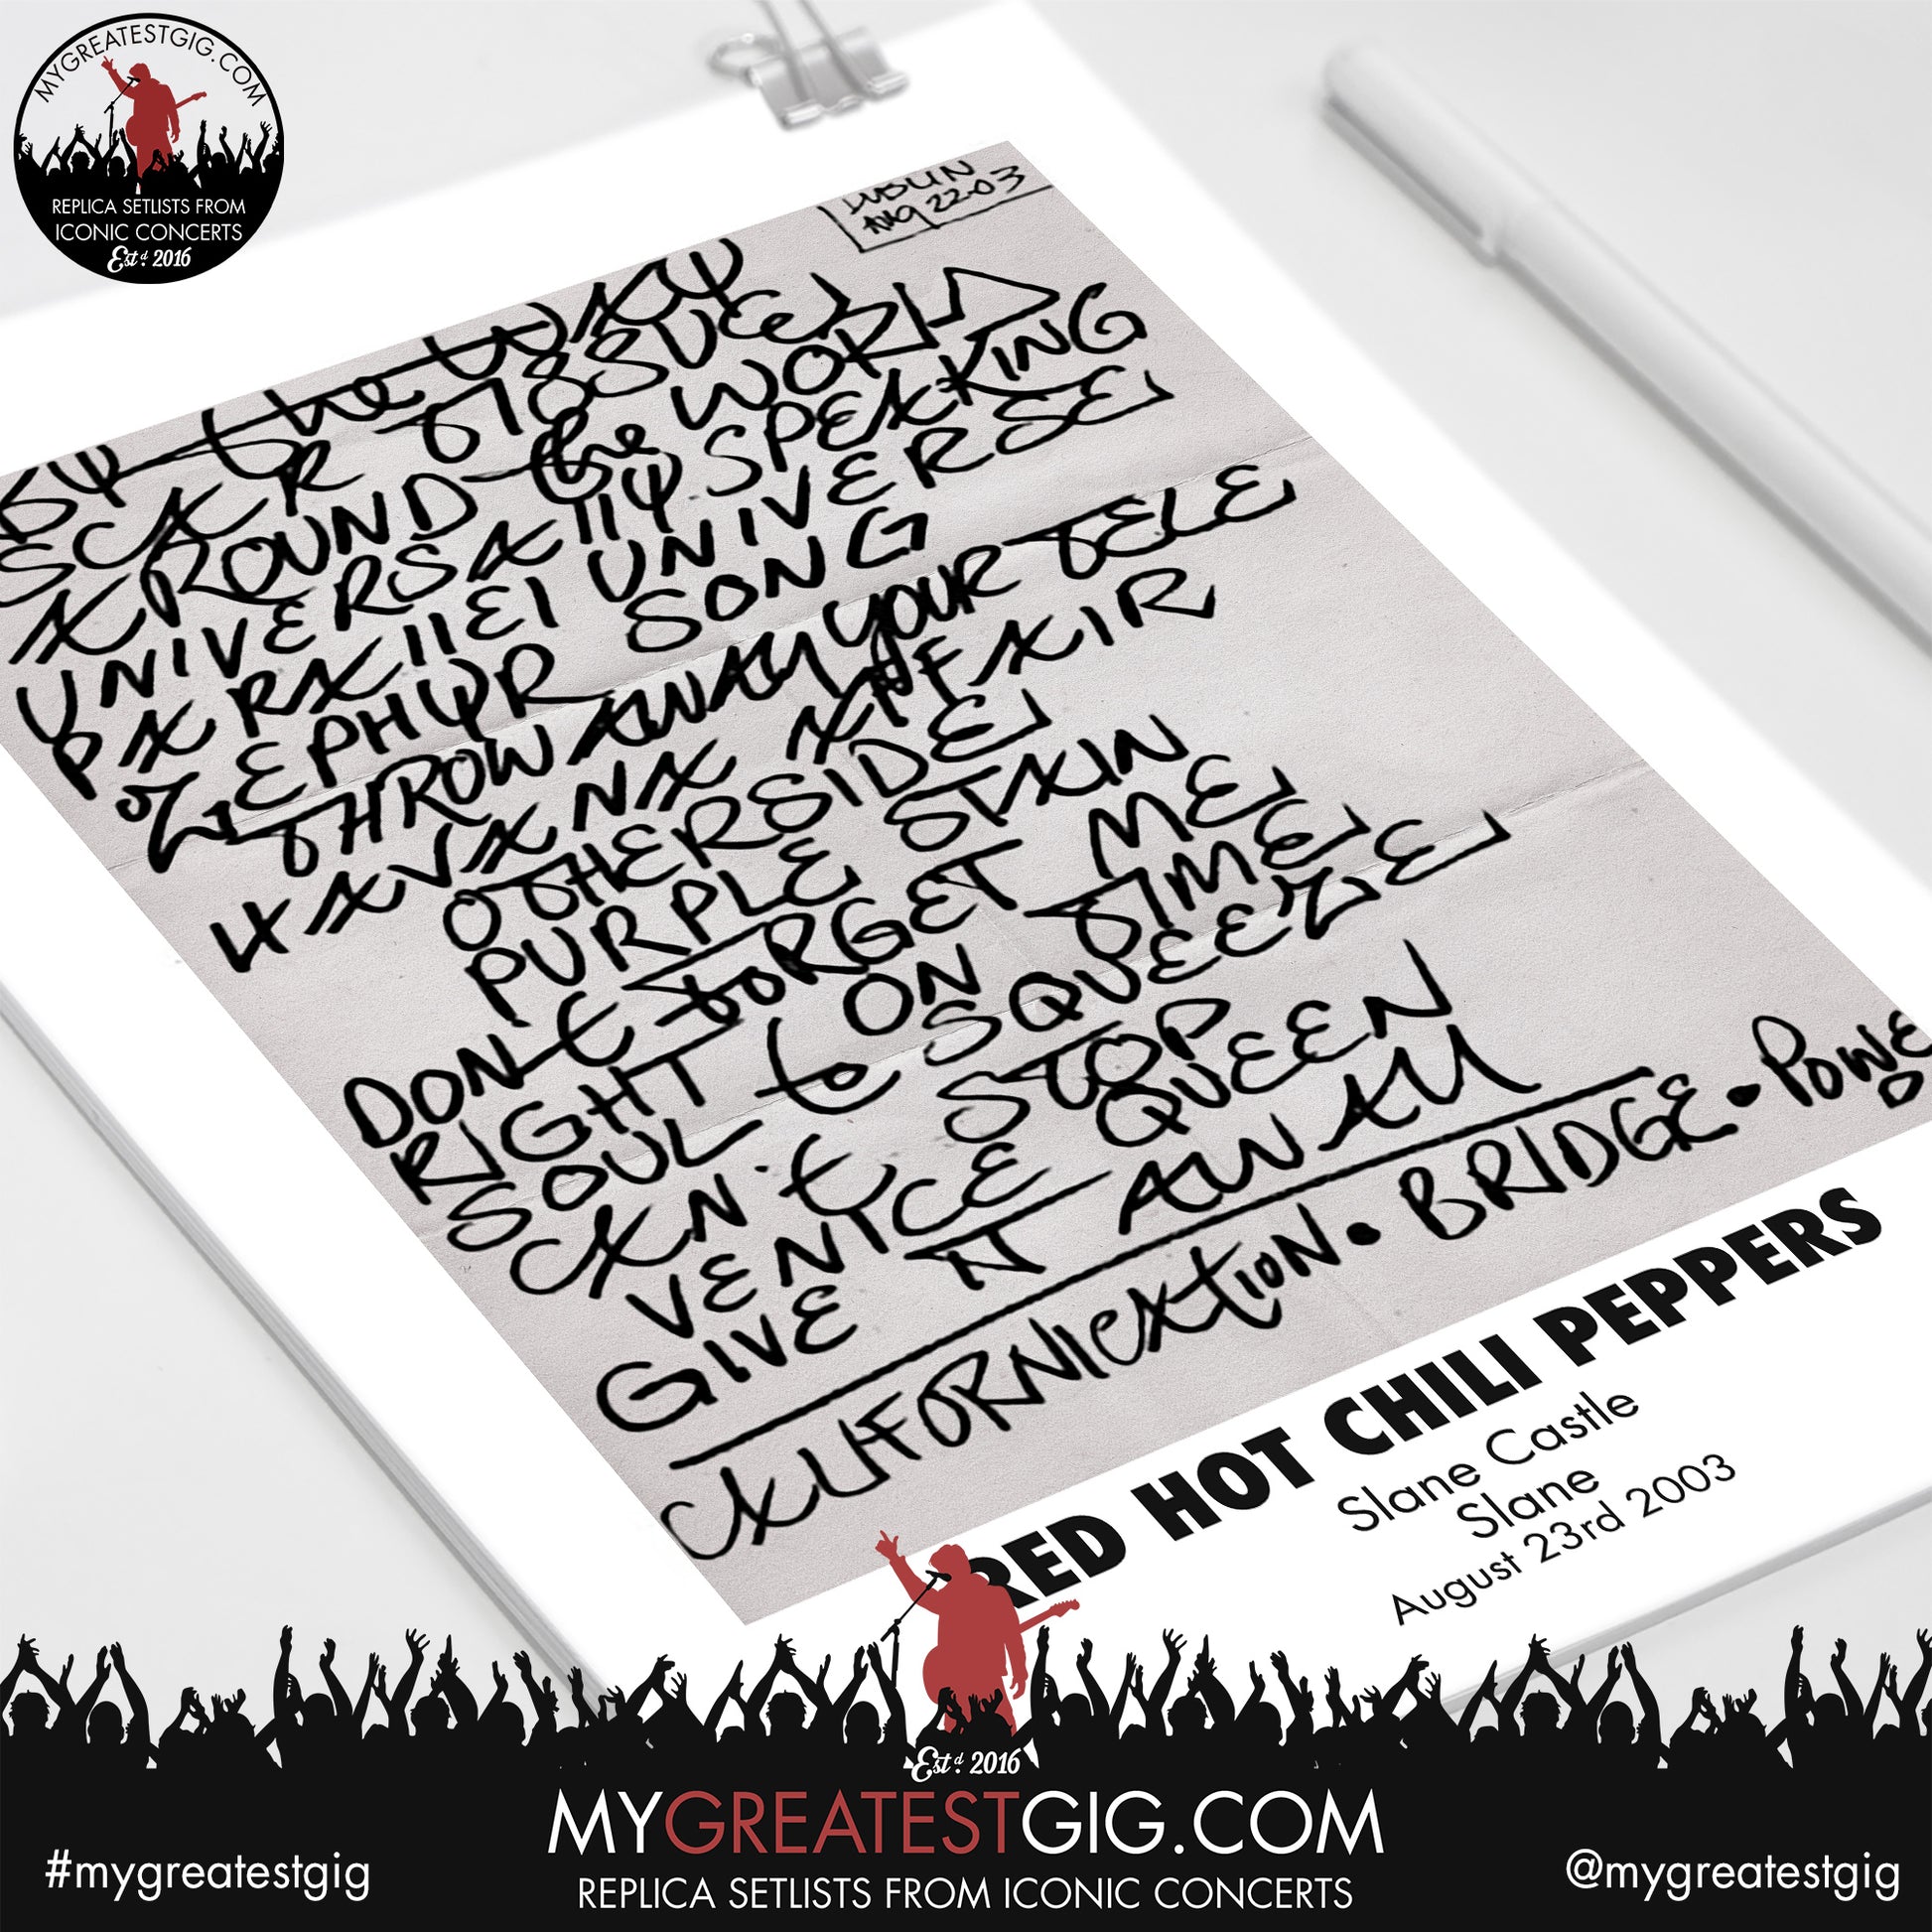 MYGREATESTGIG.COM
REPLICA SETLISTS FROM
ICONIC CONCERTS
Estd. 2016
DUBLIN
AUG 22-03
BY the WAY
SCAR TISSUE
AROUND the WORLD
UNIVERSALLY SPEAKING
PARALLEL UNIVERSE
ZEPHYR SONG
THROW AWAY YOUR TELE
HAVANA AFFAIR
OTHERSIDE
PURPLE STAIN
DONT FORGET ME
RIGHT ON TIME
SOUL to SQUEEZE
CAN'T STOP
VENICE QUEEN
GIVE IT AWAY
CALIFORNICATION • BRIDGE • POWE
RED HOT CHILI PEPPERS
Slane Castle
Slane
August 23rd 2003
Estd. 2016
MYGREATESTGIG.COM
#mygreatestgig
@mygreatestgig
REPLICA SETLISTS FROM ICONIC CONCERTS